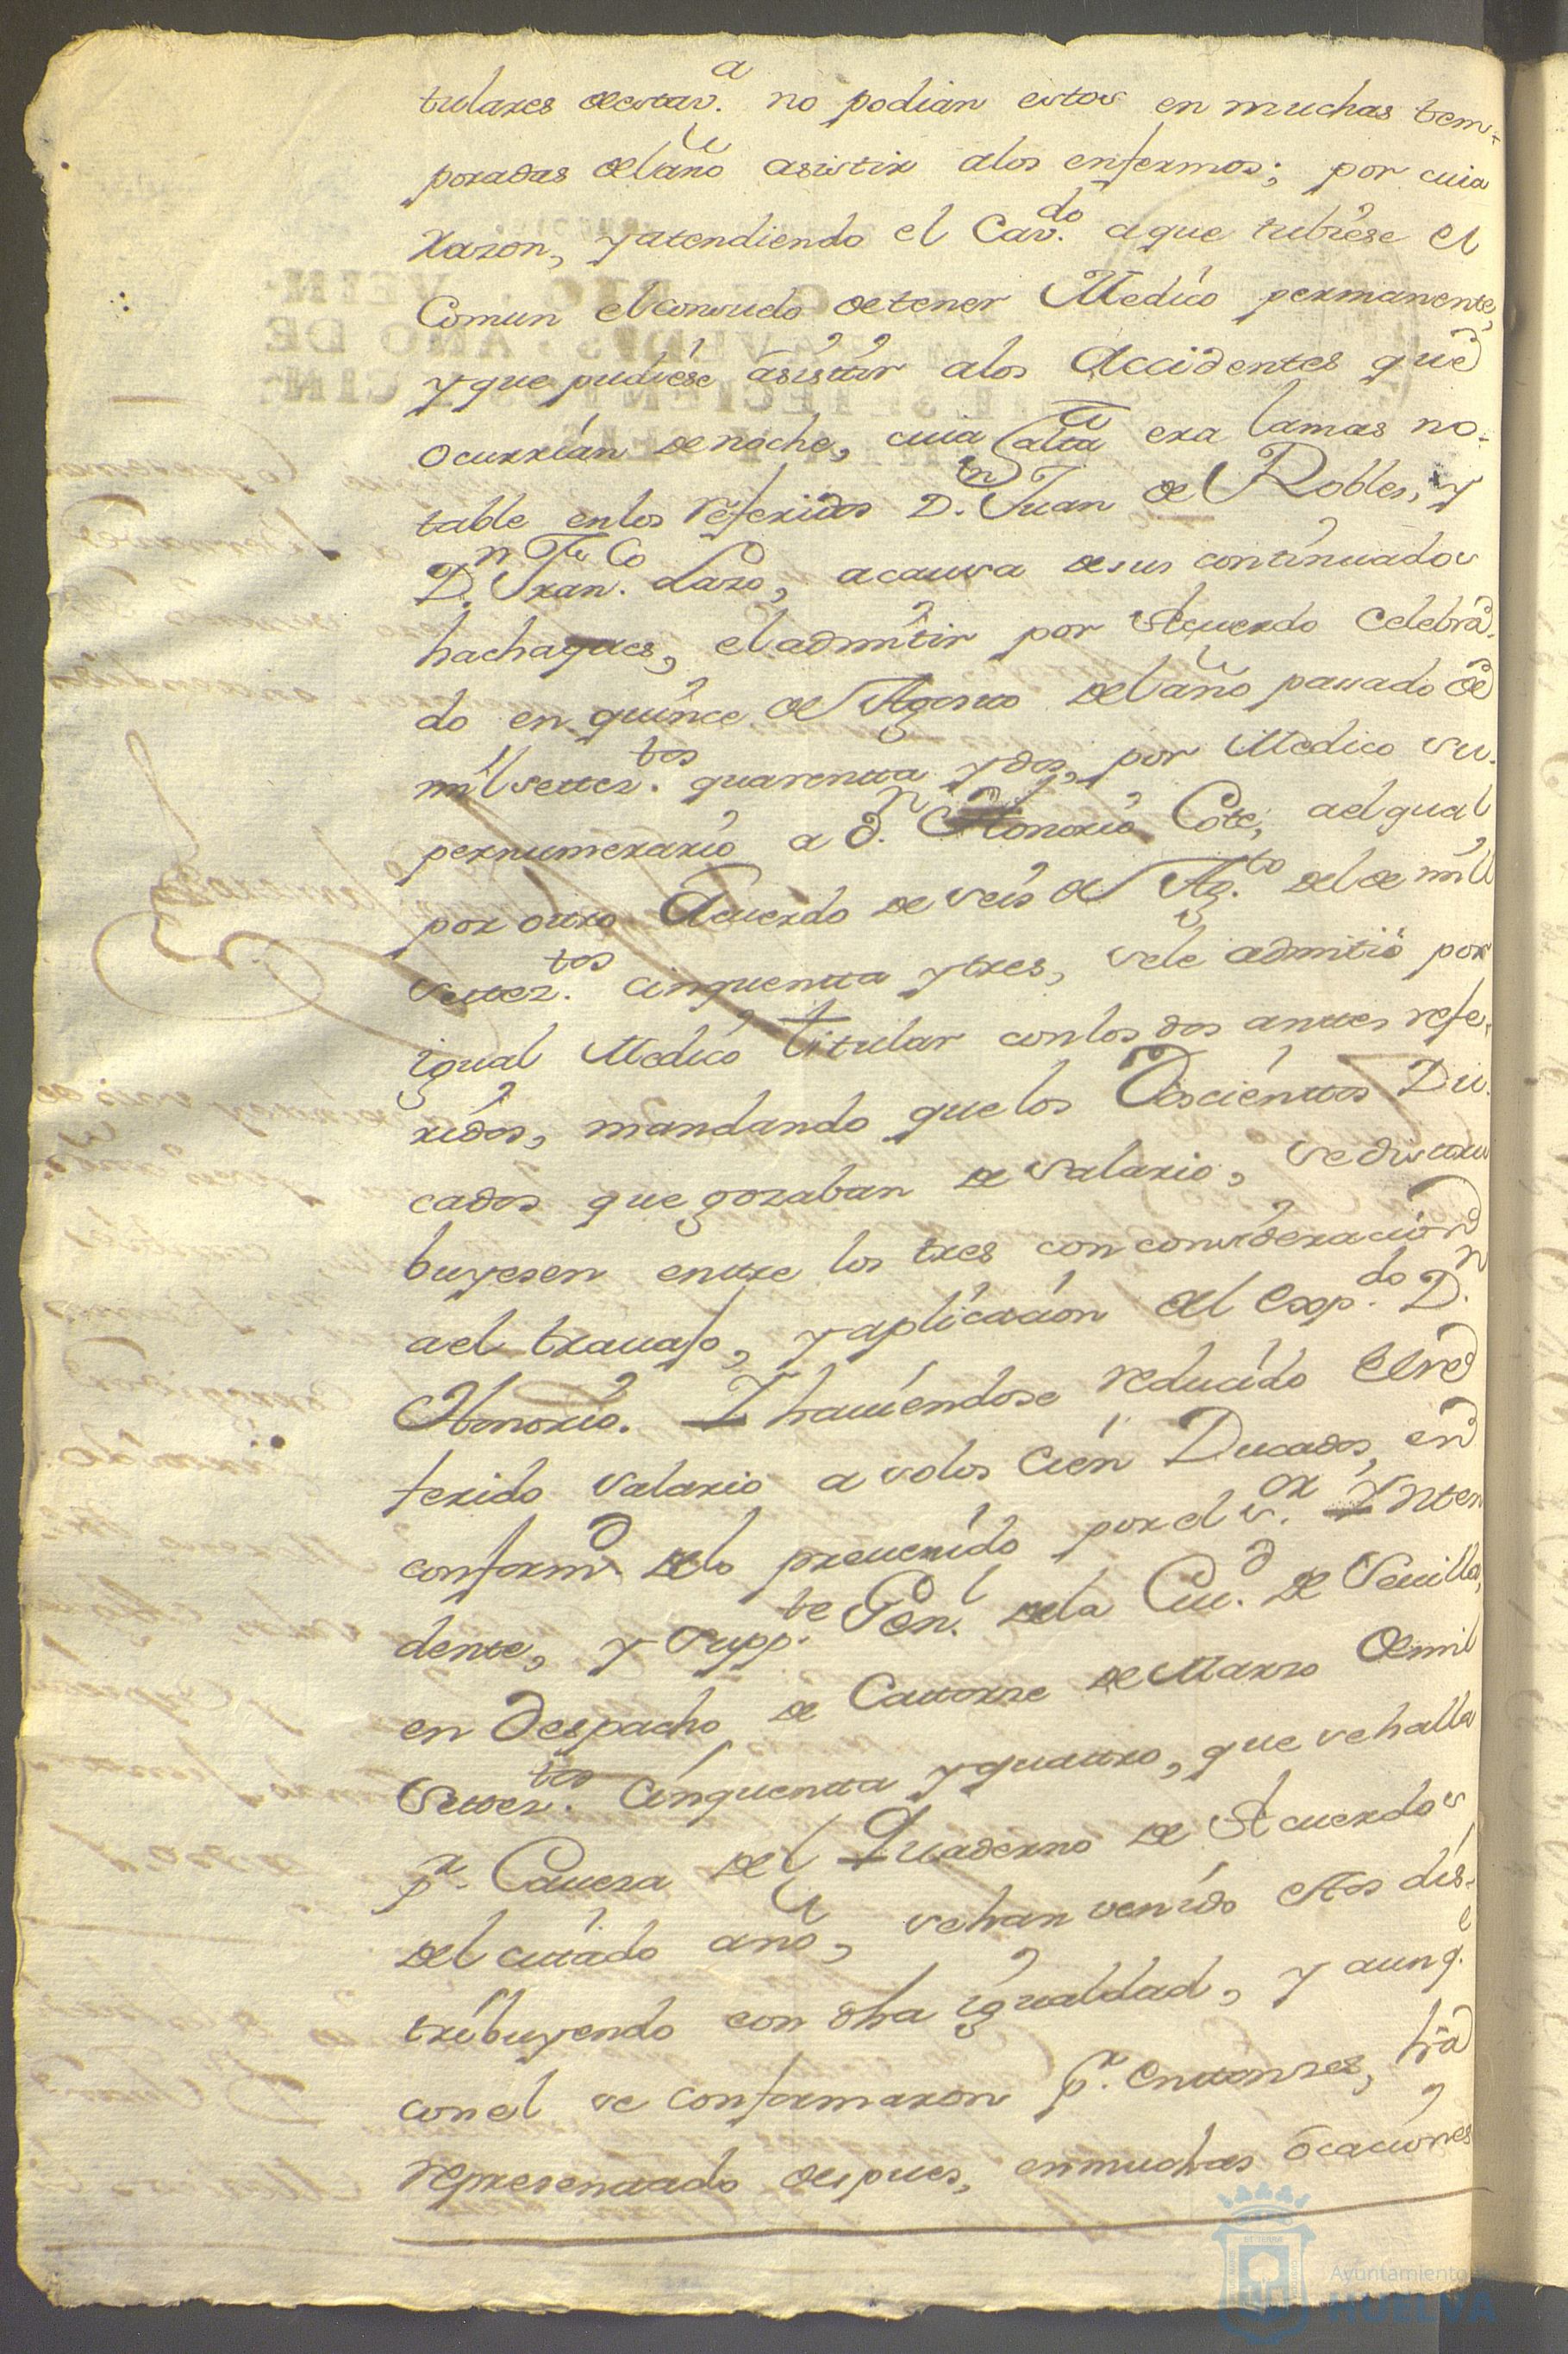 tulares deestav.ª no podian estos en muchas tem-
poradas del año asistir alos enfermos; por cuia
razon, y atendiendo el Cav.do aque tubiese el
Comun elconsuelo detener Medico permanente,
y que pudiese asistir alos Accidentes que
ocurrian denoche, cuia falta era lamas no-
table enlos referidos D.n Juan de Robles, y
D.n Fran.co Lazo, acausa desus continuados
hachaques, eladmitir por Acuerdo Celebra-
do en quince de Agosto del año pasado de
mil settez.tos quarentta y dos, por Medico su-
pernumerario a d.n Honorio Cote, aelqual
por ottro Acuerdo de seis de Ag.to del de mill
settez.tos cinquentta ytres, sele admitió por
igual Medico titular conlos dos anttes refe-
ridos, mandando quelos Doscienttos Du-
cados que gozaban de salario, sedistri
buyesen enttre los tres con consideracion
ael travajo, y aplicacion del exp.do D.n
Honorio. Y haviendose reducido el re
ferido salario a solos Cien Ducados, en
conformd. delo prevenido porel s.or Ynten
dente, y Supp.te Gen.l dela Ciu.d de Sevilla,
en despacho de Cattorze de Marzo demil
settez.tos cinquentta yquattro, que sehalla
p.r Caveza del Quaderno de Acuerdos
del cittado año, sehan venido estos dis-
tribuyendo con dha igualdad, y aunq.e
conel se conformaron p.r enttonzes, ha
representtado despues, enmuchas ocaciones
Ayuntamiento de
HUELVA